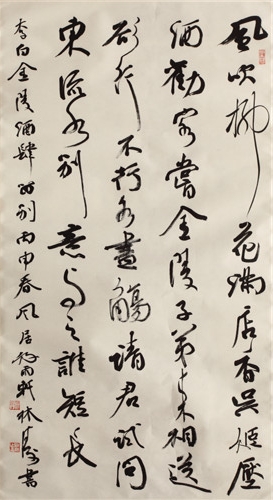 風吹柳花滿店香吳姬壓
酒勸客嘗金陵子弟來相送
欲行不行各盡觴請君試問
東流水別意與之誰短長
李白金陵酒肆留別丙申春風居 雨軒林 書